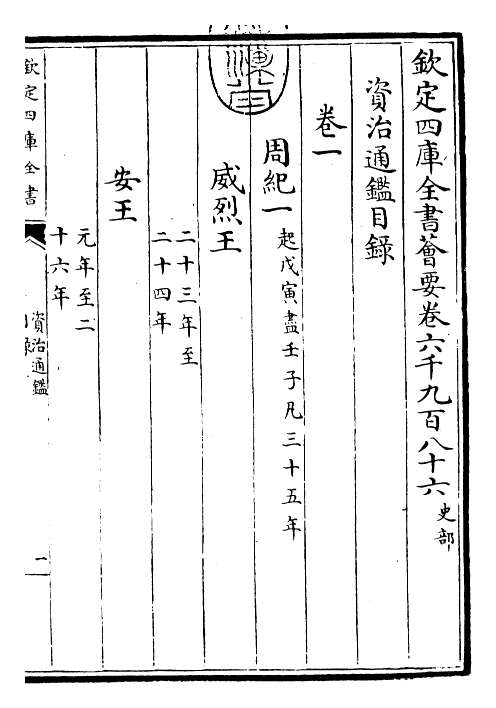 欽定四庫全書薈要卷六千九百八十六 史部
資治通鑑目錄
卷一
周紀一 起戊寅盡壬子凡三十五年
威烈王
二十三年至
二十四年
安王
元年至二
十六年
欽定四庫全書
資治通鑑
一